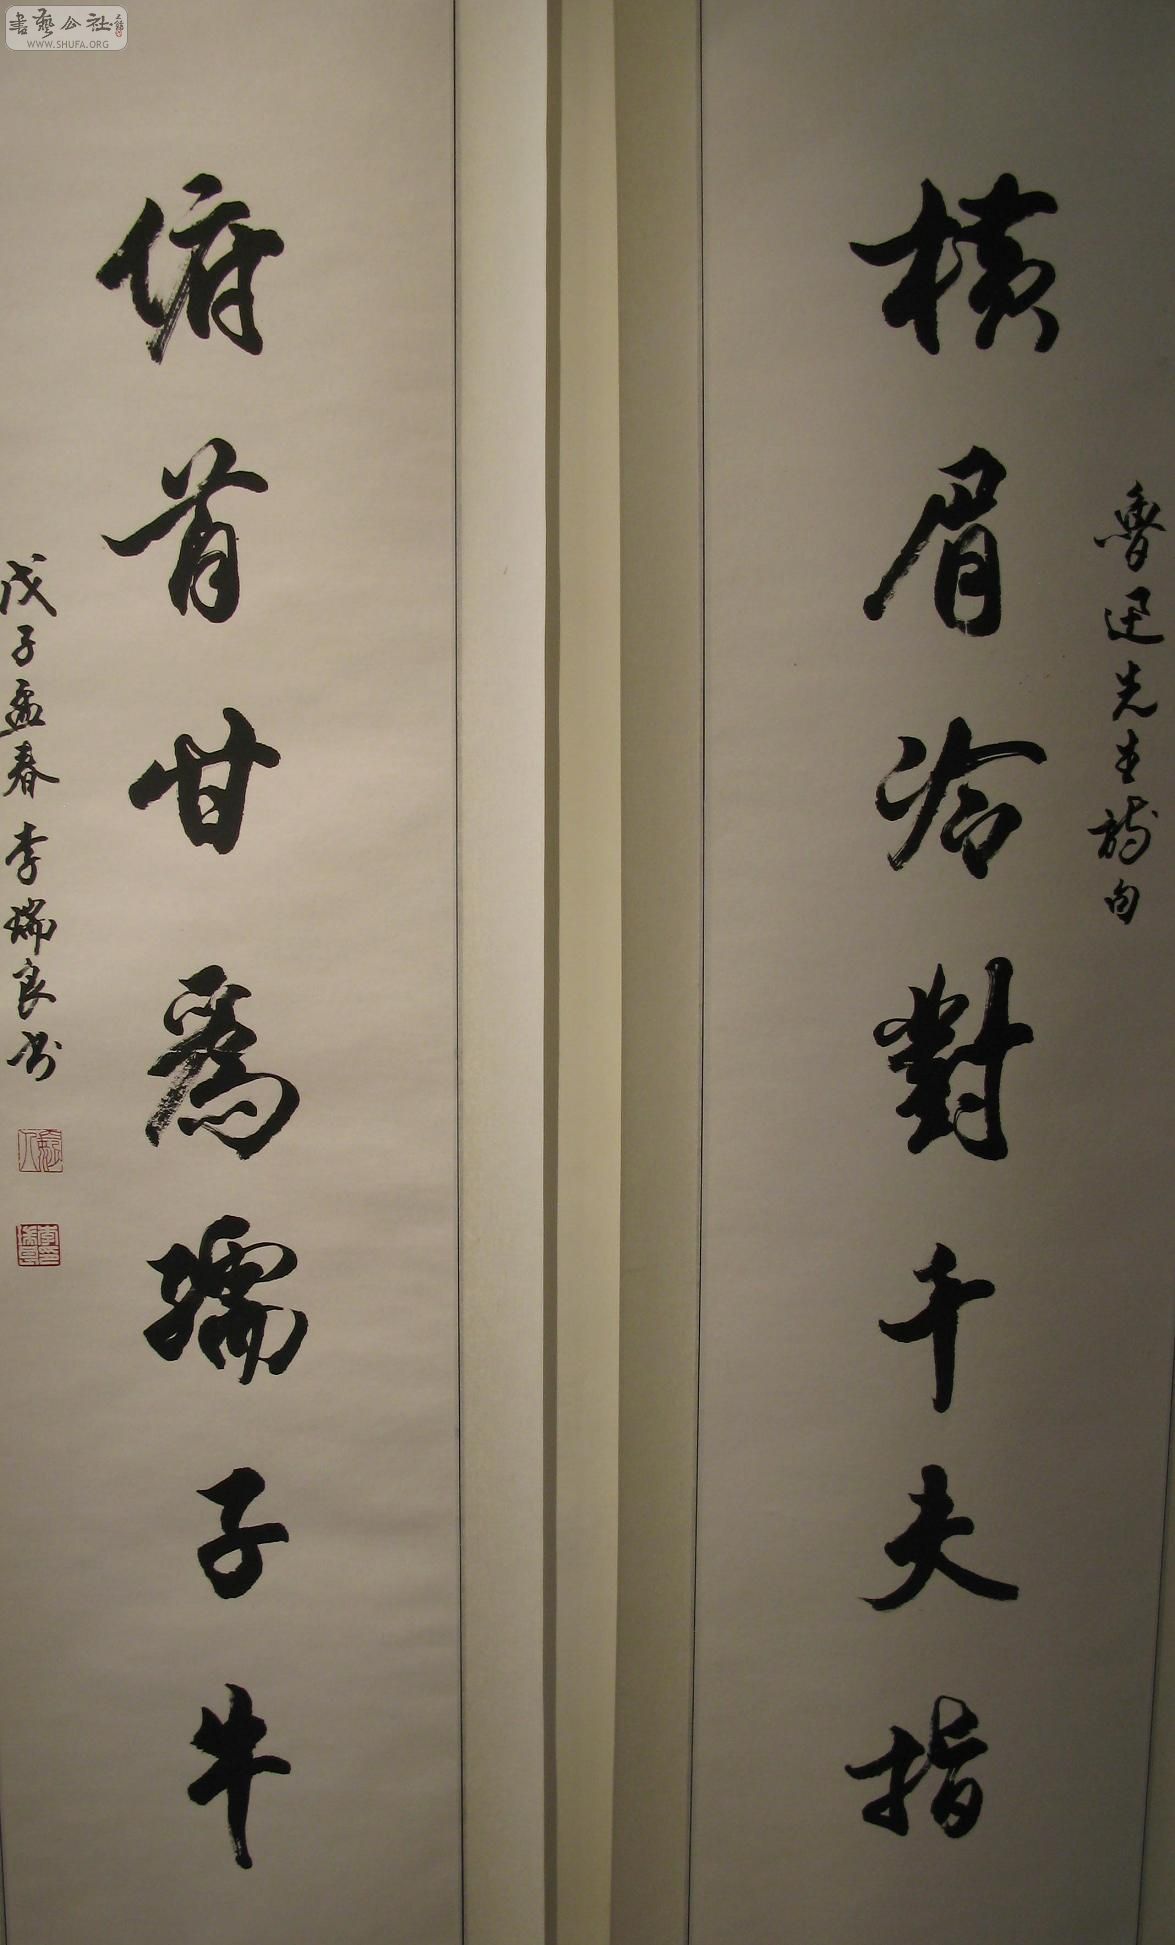 魯迅先生詩句
橫眉冷對千夫指
俯首甘爲孺子牛
戊子孟春李瑞良书
書藝公社
WWW.SHUFA.ORG